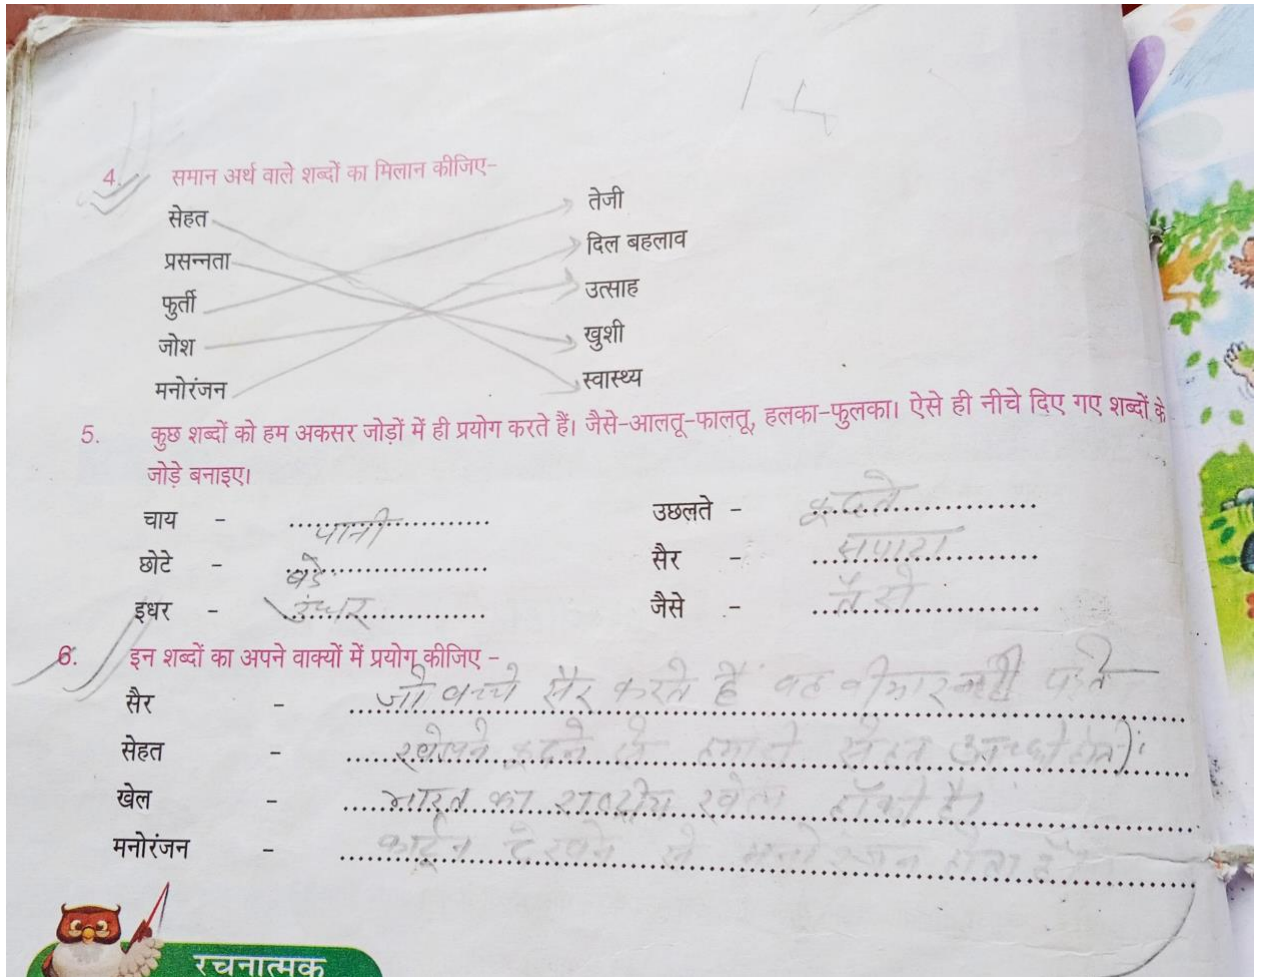 4. समान अर्थ वाले शब्दों का मिलान कीजिए-
सेहत तेजी
प्रसन्नता दिल बहलाव
फुर्ती उत्साह
जोश खुशी
मनोरंजन स्वास्थ्य
5. कुछ शब्दों को हम अकसर जोड़ों में ही प्रयोग करते हैं। जैसे-आलतू-फालतू, हलका-फुलका। ऐसे ही नीचे दिए गए शब्दों के
जोड़े बनाइए।
चाय - पानी उछलते - कूदते
छोटे - बड़े सैर - सपाटा
इधर - उधर जैसे - तैसे
6. इन शब्दों का अपने वाक्यों में प्रयोग कीजिए -
सैर - जो बच्चे सैर करते हैं वह बीमार नही पड़ते
सेहत - कूदने से हमारी सेहत अच्छी होती
खेल - भारत का राष्ट्रीय खेल हॉकी है।
मनोरंजन - कार्टून देखने से मनोरंजन होता है
रचनात्मक